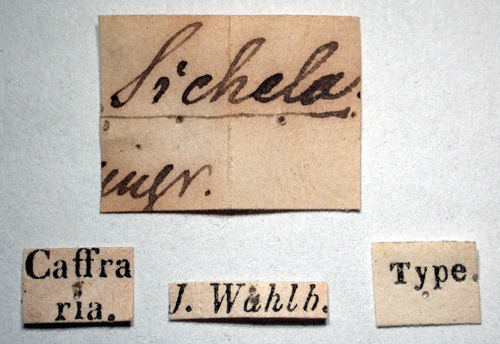 Sichela.
engr.
Caffra
ria.
J. Wahlb.
Type.